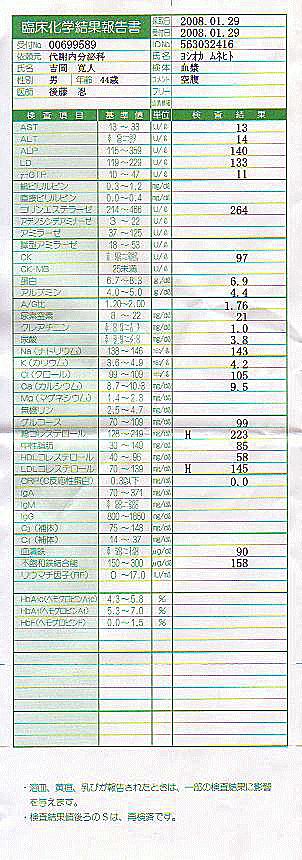 臨床化学結果報告書
採取日 2008.01.29
受付日 2008.01.29
受付No 00699589 ID No 563032416
依頼元 代謝内分泌科 氏名 ヨシオカ ムネヒト
氏名 吉岡 寛人 検体 血漿
性別 男 年齢 44歳 コメント 空腹
医師 後藤 忍
検査項目 基準値 単位 検査結果
AST 13~33 U/ℓ 13
ALT U/ℓ 14
ALP 115~359 U/ℓ 140
LD 119~229 U/ℓ 133
γ-GTP 10~47 U/ℓ 11
総ビリルビン 0.3~1.2 mg/dℓ
直接ビリルビン 0.0~0.4 mg/dℓ
コリンエステラーゼ 214~466 U/ℓ 264
アデノシンデアミナーゼ 3~22 U/ℓ
アミラーゼ 37~125 U/ℓ
膵型アミラーゼ 18~53 U/ℓ
CK U/ℓ 97
CK-MB 25未満 U/ℓ
蛋白 6.7~8.3 g/dℓ 6.9
アルブミン 4.0~5.0 g/dℓ 4.4
A/G比 1.20~2.00 1.76
尿素窒素 8~22 mg/dℓ 21
クレアチニン mg/dℓ 1.0
尿酸 mg/dℓ 3.8
Na(ナトリウム) 138~146 143
K(カリウム) 3.6~4.9 4.2
Cl(クロール) 99~109 105
Ca(カルシウム) 8.7~10.3 mg/dℓ 9.5
Mg(マグネシウム) 1.4~2.3 mg/dℓ
無機リン 2.5~4.7 mg/dℓ
グルコース 70~109 mg/dℓ 99
総コレステロール 128~219 mg/dℓ H 223
中性脂肪 30~149 mg/dℓ 85
HDLコレステロール 40~96 mg/dℓ 58
LDLコレステロール 70~139 mg/dℓ H 145
CRP(C反応性蛋白) 0.3以下 mg/dℓ 0.0
IgA 70~371 mg/dℓ
IgM mg/dℓ
IgG 800~1650 mg/dℓ
C₃(補体) 75~143 mg/dℓ
C₄(補体) 14~37 mg/dℓ
血清鉄 μg/dℓ 90
不飽和鉄結合能 150~300 μg/dℓ 158
リウマチ因子(RF) 0~17.0 IU/mℓ
HbA1c(ヘモグロビンA1c) 4.3~5.8 %
HbA1(ヘモグロビンA1) 5.3~7.0 %
HbF(ヘモグロビンF) 0.0~1.5 %
・溶血、黄疸、乳びが報告されたときは、一部の検査結果に影響
を与えます。
・検査結果値後ろのSは、再検済です。